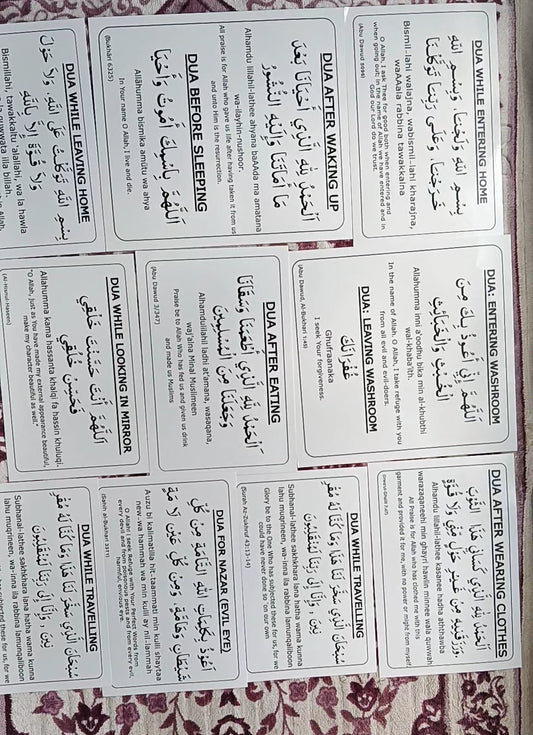 DUA WHILE ENTERING HOME
بِسْمِ اللَّهِ وَلَجْنَا، وَبِسْمِ اللَّهِ
خَرَجْنَا، وَعَلَى رَبِّنَا تَوَكَّلْنَا
Bismil-lahi walajna, wabismil-lahi kharajna,
waAAala rabbina tawakkalna
O Allah, I ask Thee for good both when entering and
when going out; in the name of Allah we have entered and in
God our Lord do we trust.
(Abu Dawud 5096)
DUA AFTER WAKING UP
اَلْحَمْدُ لِلَّهِ الَّذِي أَحْيَانَا بَعْدَ
مَا أَمَاتَنَا وَإِلَيْهِ النُّشُورُ
Alhamdu lillahil-lathee ahyana baAAda ma amatana
wa-ilayhin-nushoor.
All praise is for Allah who gave us life after having taken it from us
and unto Him is the resurrection.
DUA BEFORE SLEEPING
اَللَّهُمَّ بِاسْمِكَ أَمُوتُ وَأَحْيَا
Allāhumma bismika amūtu wa ahya
In Your name O Allah, I live and die.
(Bukhāri 6325)
DUA WHILE LEAVING HOME
بِسْمِ اللَّهِ تَوَكَّلْتُ عَلَى اللَّهِ، وَلَا حَوْلَ
وَلَا قُوَّةَ إِلَّا بِاللَّهِ
Bismillahi, tawakkaltu 'alallahi, wa la hawla
wa la quwwata illa billah
DUA: ENTERING WASHROOM
اَللَّهُمَّ إِنِّي أَعُوذُ بِكَ مِنَ
الْخُبُثِ وَالْخَبَائِثِ
Allahumma inni a'oodhu bika min al-khubthi
wal-khaba'ith.
In the name of Allah. O Allah, I take refuge with you
from all evil and evil-doers.
DUA: LEAVING WASHROOM
غُفْرَانَكَ
Ghufraanaka
I seek Your forgiveness.
DUA AFTER EATING
اَلْحَمْدُ لِلَّهِ الَّذِي أَطْعَمَنَا وَسَقَانَا
وَجَعَلَنَا مِنَ الْمُسْلِمِينَ
Alhamdulillahil ladhi at'amana, wasaqana,
waj'alna Minal Muslimeen
Praise be to Allah Who has fed us and given us drink
and made us Muslims
(Abu Dawud 3/347)
DUA WHILE LOOKING IN MIRROR
اَللَّهُمَّ أَنْتَ حَسَّنْتَ خَلْقِي
فَحَسِّنْ خُلُقِي
Allahumma kama hassanta khalqi fa hassin khuluqi.
"O Allah, just as You have made my external appearance beautiful,
make my character beautiful as well."
(Al-Hisnul-Haseen)
DUA AFTER WEARING CLOTHES
اَلْحَمْدُ لِلَّهِ الَّذِي كَسَانِي هَذَا الثَّوْبَ
وَرَزَقَنِيهِ مِنْ غَيْرِ حَوْلٍ مِنِّي وَلَا قُوَّةٍ
Alhamdu lillahil-lathee kasanee hadha aththawba
warazaqaneehi min ghayri hawlin minnee wala quwwah
All Praise is for Allah who has clothed me with this
garment and provided it for me, with no power or might from myself
DUA WHILE TRAVELLING
سُبْحَانَ الَّذِي سَخَّرَ لَنَا هَذَا وَمَا كُنَّا لَهُ مُقْرِ
نِينَ، وَإِنَّا إِلَى رَبِّنَا لَمُنْقَلِبُونَ
Subhanal-lathee sakhkhara lana hatha wama kunna
lahu muqrineen, wa-inna ila rabbina lamunqaliboon
Glory be to the One Who has subjected these for us, for we
could have never done so 'on our own
(Surah Az-Zukhruf 43:13-14)
DUA FOR NAZAR (EVIL EYE)
أَعُوذُ بِكَلِمَاتِ اللَّهِ التَّامَّةِ مِنْ كُلِّ
شَيْطَانٍ وَهَامَّةٍ، وَمِنْ كُلِّ عَيْنٍ لَامَّةٍ
Auzu bi kalimatilla hit-taammati min kulli shayta
new-wa hammah wa min kulli ay nil lammah
O Allah! I seek Refuge with Your Perfect Words from
every devil and from poisonous pests and from every evil,
harmful, envious eye.
(Sahih al-Bukhari 3371)
DUA WHILE TRAVELLING
سُبْحَانَ الَّذِي سَخَّرَ لَنَا هَذَا وَمَا كُنَّا لَهُ مُقْرِ
نِينَ، وَإِنَّا إِلَى رَبِّنَا لَمُنْقَلِبُونَ
Subhanal-lathee sakhkhara lana hatha wama kunna
lahu muqrineen, wa-inna ila rabbina lamunqaliboon
subjected these for us, for we